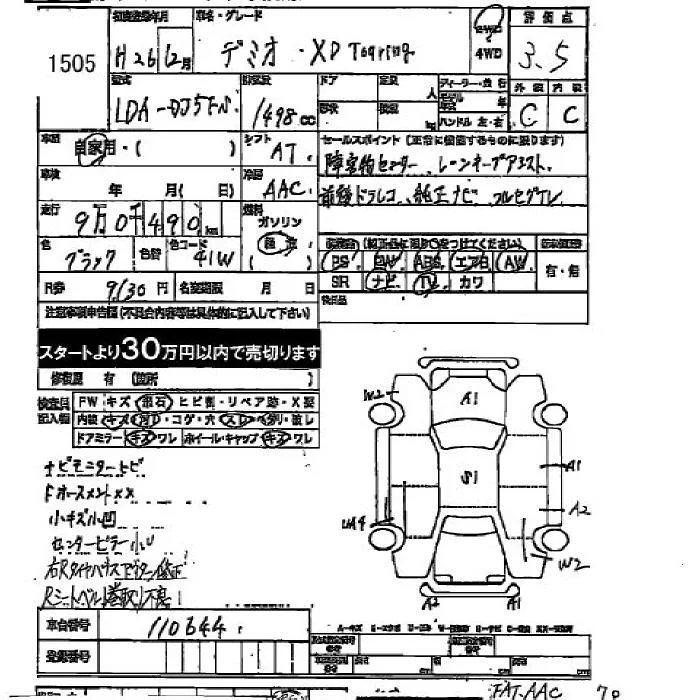 初度登録年月
車名・グレード
評価点
1505
H26 6月
デミオ・XD Touring
2WD
4WD
3.5
型式
LDA-DJ5FS
排気量
1498cc
ドア
定員
人
形状
積載
kg
年
ハンドル 左・右
外装 内装
C C
車歴
自家用・( )
シフト
AT.
セールスポイント
障害物センサー、レーンキープアシスト、
前後ドラレコ、純正ナビ フルセグTV
車検
年 月( 日)
冷房
AAC.
走行
9万0千490km
燃料
ガソリン
軽油
( )
色
ブラック
色替
色コード
41W
PS PW ABS エアB AW
SR ナビ TV カワ
有・無
R券
9,130円
名変期限 月 日
注意事項申告欄(不具合内容等は具体的に記入して下さい)
スタートより30万円以内で売切ります
修復歴 有 (箇所 )
検査員記入欄
FW キズ 飛石 ヒビ割・リペア跡・X要
内装 キズ 汚レ・コゲ・穴 スレ
ドアミラー キズ ワレ ホイール・キャップ キズ ワレ
ナビモニタートビ
小キズ小凹
センターピラー小U
W2
A1
S1
A1
A2
UA4
W2
A2 A1
車台番号
110644
登録番号
FAT.AAC